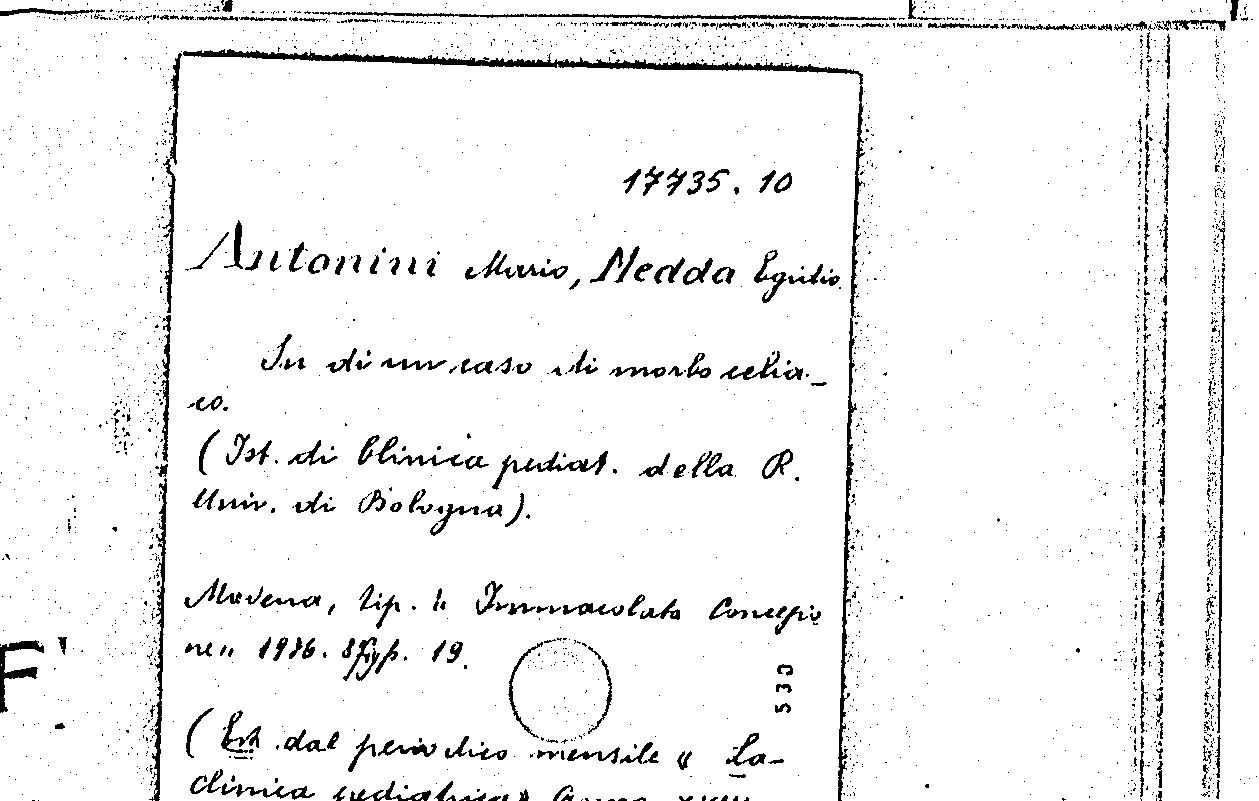 17735. 10
Antonini Mario, Medda Egidio
In di un caso di morbo celia-
co.
(Ist. di Clinica pediat. della R.
Univ. di Bologna).
Modena, tip. "Immacolata Concezio
ne" 1936. 8° pp. 19.
530
F'
(Estr. dal periodico mensile "La
clinica pediatrica" Anno